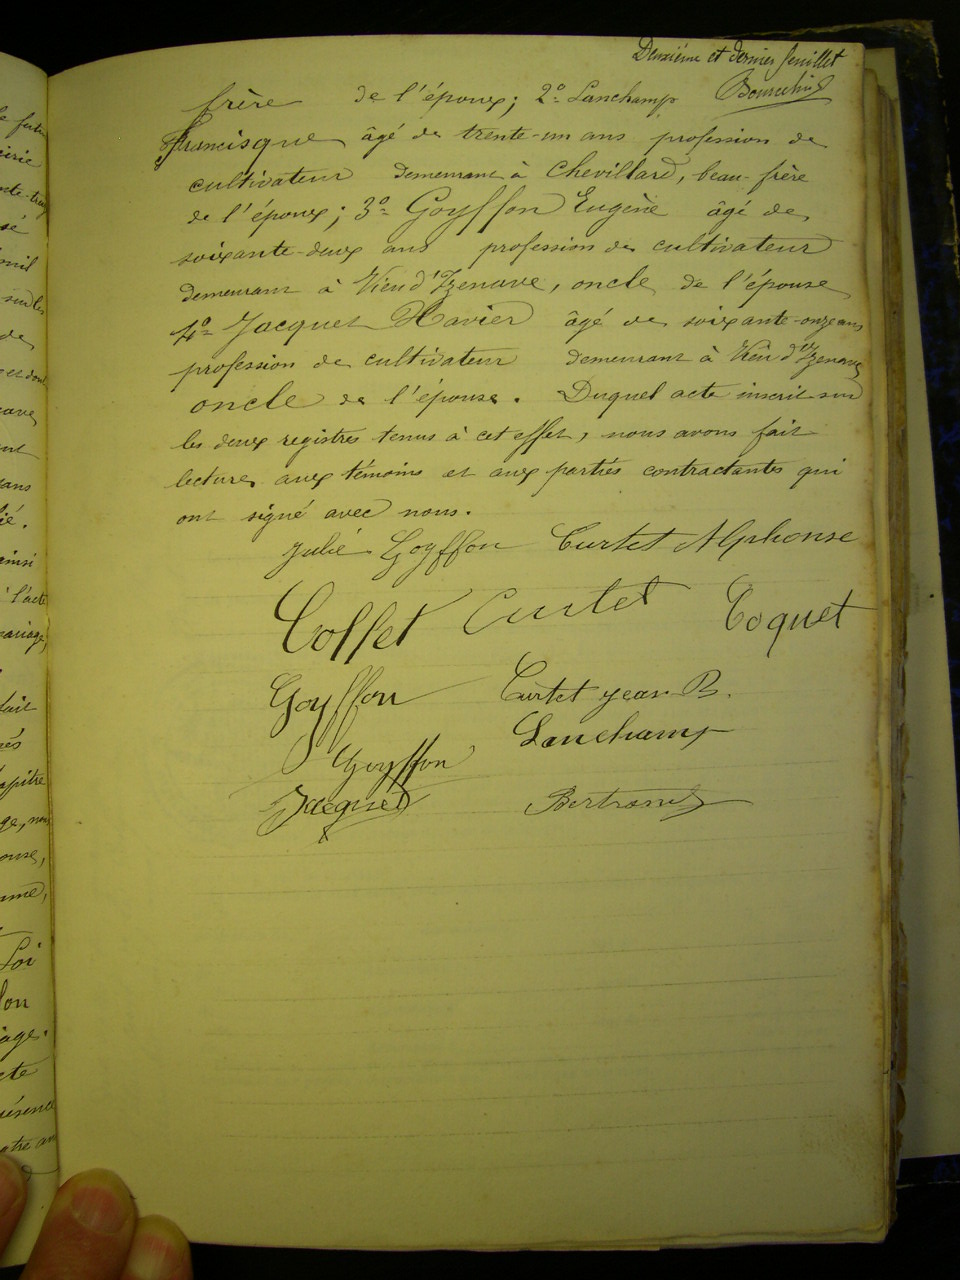 Deuxième et dernier feuillet
frère de l'époux; 2º Lanchamp
Francisque âgé de trente-un ans profession de
cultivateur demeurant à Chevillard, beau-frère
de l'époux; 3º Goyffon Eugène âgé de
soixante-deux ans profession de cultivateur
demeurant à Vieu d'Izenave, oncle de l'épouse
4º Jacquet Xavier âgé de soixante-onze ans
profession de cultivateur demeurant à Vieu d'Izenave
oncle de l'épouse. Duquel acte inscrit sur
les deux registres tenus à cet effet, nous avons fait
lecture aux témoins et aux parties contractantes qui
ont signé avec nous.
Julie Goyffon Curtet Alphonse
Collet Curtet Coquet
Goyffon Curtet Jean B.
Lanchamp
Goyffon
Jacquet Bertrand